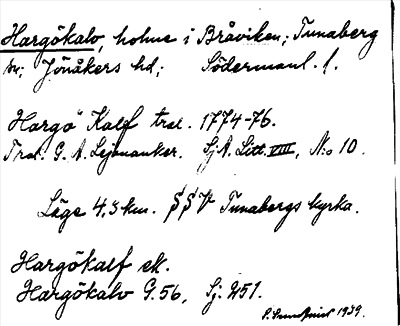 Hargökalv, holme i Bråviken; Tunaberg
sn; Jönåkers hd; Södermanl. l.
Hargö Kalf trol. 1774-76.
Trol. G. A. Lejonanker. Sj A. Litt. VIII, N:o 10.
Läge 4,3 km. SSV Tunabergs kyrka.
Hargökalf ek.
Hargökalv G. 56, Sj. 251.
1939.